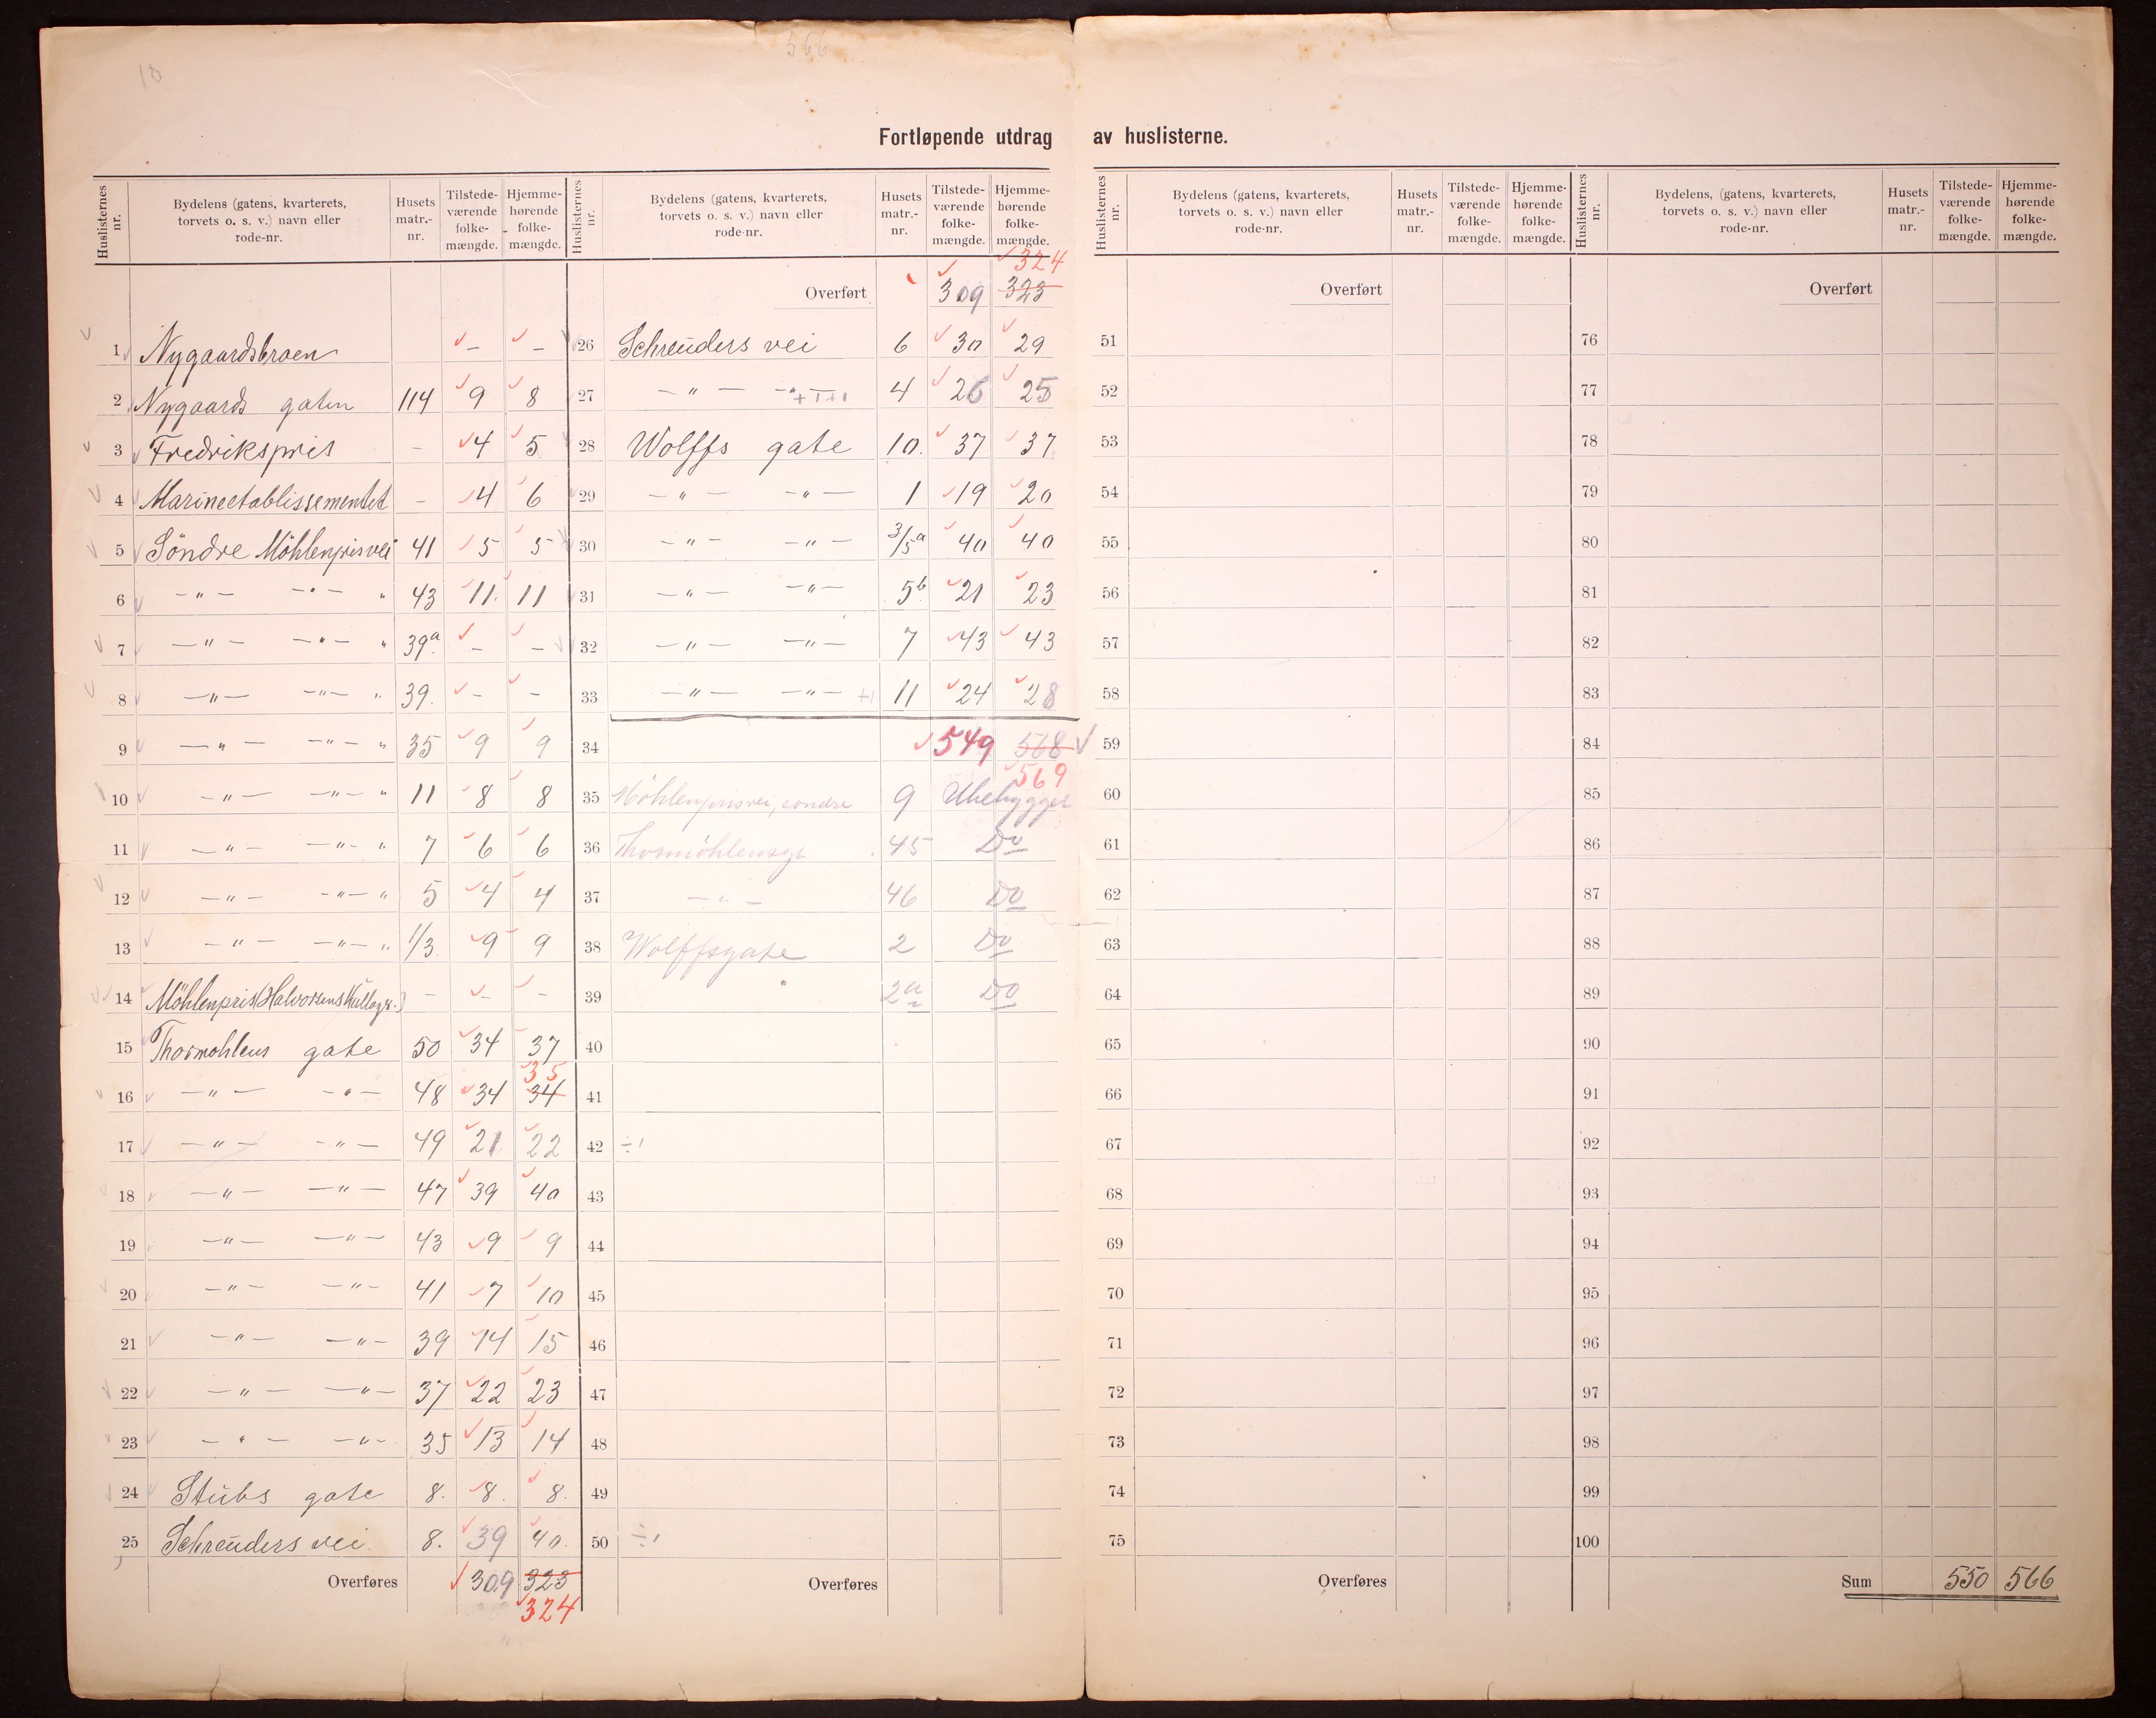 566
10
Fortløpende utdrag av huslisterne.
Huslisternes nr. | Bydelens (gatens, kvarterets, torvets o. s. v.) navn eller rode-nr. | Husets matr.-nr. | Tilstede-værende folke-mængde. | Hjemme-hørende folke-mængde.
Huslisternes nr. | Bydelens (gatens, kvarterets, torvets o. s. v.) navn eller rode-nr. | Husets matr.-nr. | Tilstede-værende folke-mængde. | Hjemme-hørende folke-mængde.
1 Nygaardsbroen – –
2 Nygaards gaten 114 9 8
3 Fredrikspris – 4 5
4 Marineetablissementet – 4 6
5 Söndre Möhlenprisvei 41 5 5
6 –"– –"– " 43 11. 11
7 –"– –"– " 39a – –
8 –"– –"– " 39. – –
9 –"– –"– " 35 9 9
10 –"– –"– " 11 8 8
11 –"– –"– " 7 6 6
12 –"– –"– " 5 4 4
13 –"– –"– " 1/3 9 9
14 Möhlenpris (Halvorsens Kullager.) – – –
15 Thormohlens gate 50 34 37
35
16 –"– –"– 48 34 34
17 –"– –"– 49 21 22
18 –"– –"– 47 39 40
19 –"– –"– 43 9 9
20 –"– –"– 41 7 10
21 –"– –"– 39 14 15
22 –"– –"– 37 22 23
23 –"– –"– 35 13 14
24 Stubs gate 8. 8. 8.
25 Schreuders vei. 8. 39 40.
Overføres 309 323
324
324
Overført 309 323
26 Schreuders vei 6 30 29
27 –"– –"– +1+1 4 26 25
28 Wolffs gate 10. 37 37
29 –"– –"– 1 19 20
30 –"– –"– 3/5a 40 40
31 –"– –"– 5b 21 23
32 –"– –"– 7 43 43
33 –"– –"– +1 11 24 28
34 549 568
569
35 Möhlenprisvei, söndre 9 Ubebygget
36 Thormöhlensgt 45 Do
37 –"– 46 Do
38 Wolffsgate 2 Do
39 " 2a Do
40
41
42 ÷1
43
44
45
46
47
48
49
50 ÷1
Overføres
Huslisternes nr. | Bydelens (gatens, kvarterets, torvets o. s. v.) navn eller rode-nr. | Husets matr.-nr. | Tilstede-værende folke-mængde. | Hjemme-hørende folke-mængde.
Overført
51
52
53
54
55
56
57
58
59
60
61
62
63
64
65
66
67
68
69
70
71
72
73
74
75
Overføres
Huslisternes nr. | Bydelens, (gatens, kvarterets, torvets o. s. v.) navn eller rode-nr. | Husets matr.-nr. | Tilstede-værende folke-mængde. | Hjemme-hørende folke-mængde.
Overført
76
77
78
79
80
81
82
83
84
85
86
87
88
89
90
91
92
93
94
95
96
97
98
99
100
Sum 550 566